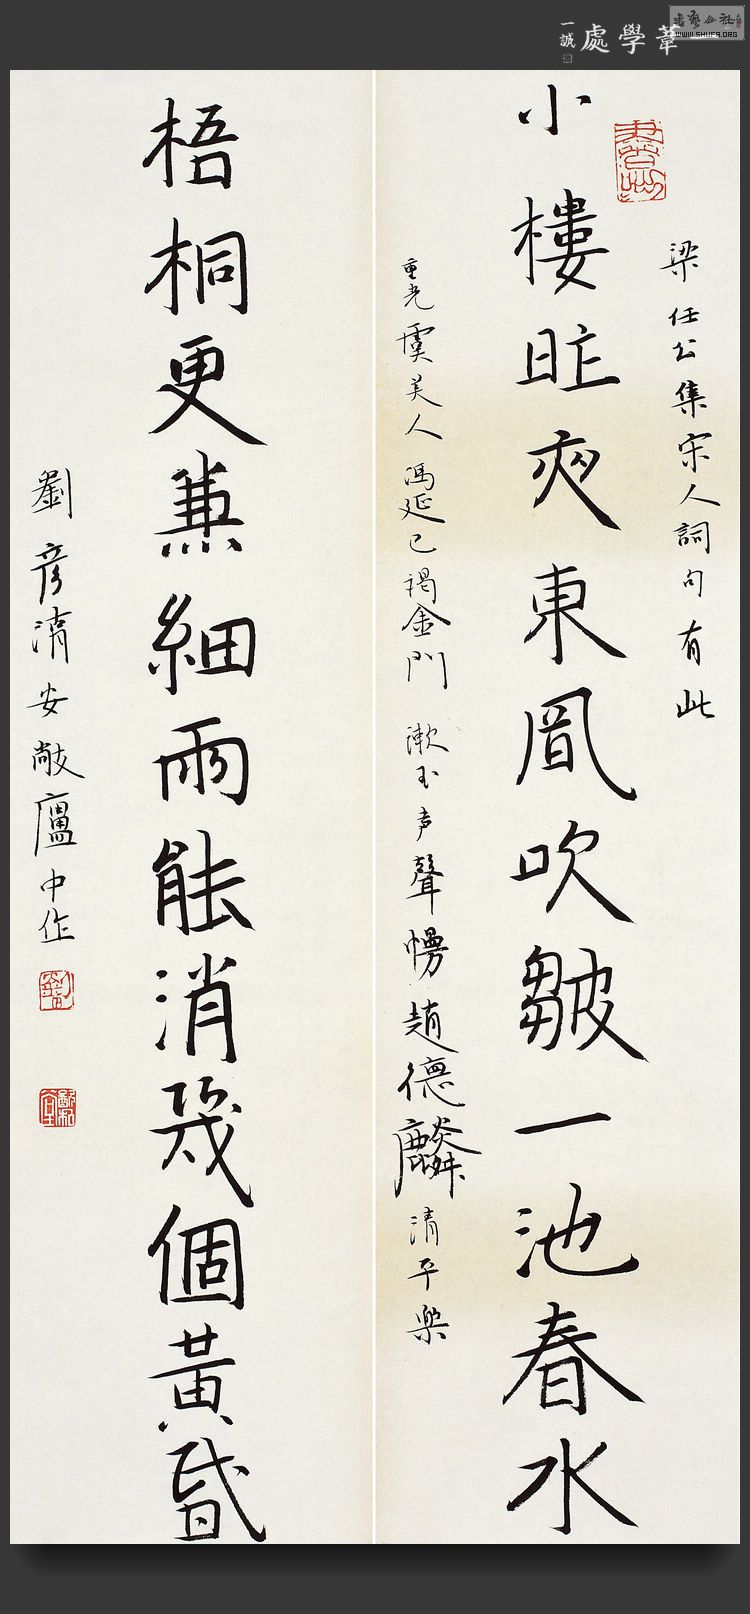 書藝公社
WWW.SHUFA.ORG
一葦學處
一誠
梁任公集宋人詞句有此
小樓昨夜東風吹皺一池春水
重光虞美人 馮延巳謁金門 漱玉声聲慢 趙德麟清平樂
梧桐更兼細雨能消幾個黃昏
劉彥湖安敞廬中作